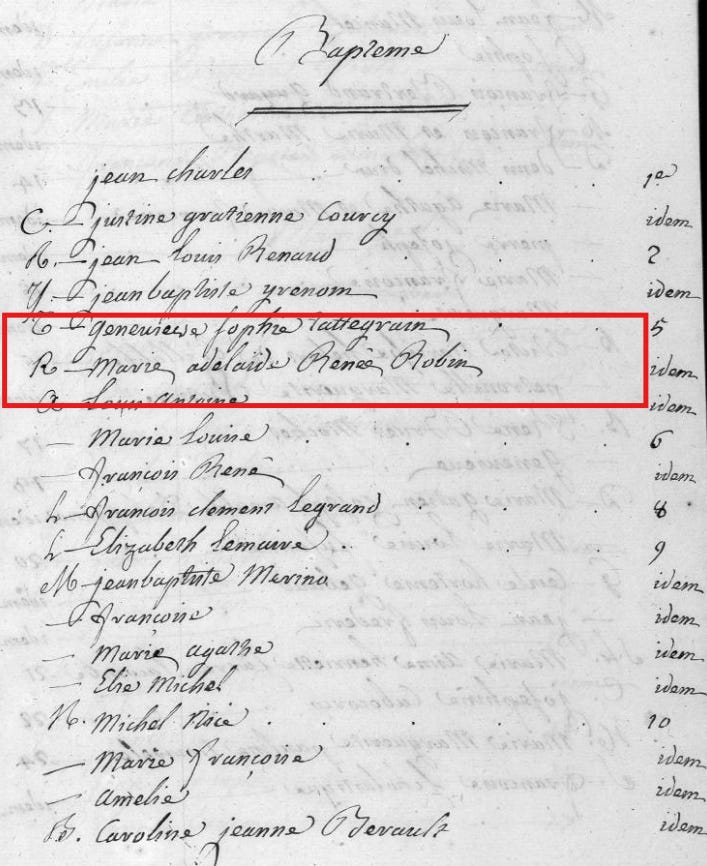 Bapteme
jean charles . . . . 1er
C. justine gratienne Courcy . . idem
R. — jean Louis Renaud . . . 2
Y. — jean baptiste yrenom . . . idem
T — genevieve Sophie Tattegrain . . 5
R — Marie adelaide Renée Robin . . idem
A Louis Antoine . . . idem
— Marie Louise . . . . 6
— françois René . . . . idem
L — françois clement Legrand . . 8
L — Elizabeth Lemaire . . . 9
M — jean baptiste Merina . . . idem
— françoise . . . . idem
— Marie agathe . . . . idem
— Elie Michel . . . . idem
N. Michel Nice . . . . 10
— Marie françoise . . . idem
— amelie . . . . idem
B. Caroline jeanne Berault . . idem